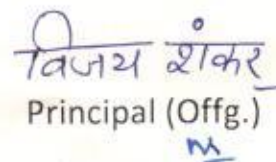 विजय शंकर
Principal (Offg.)